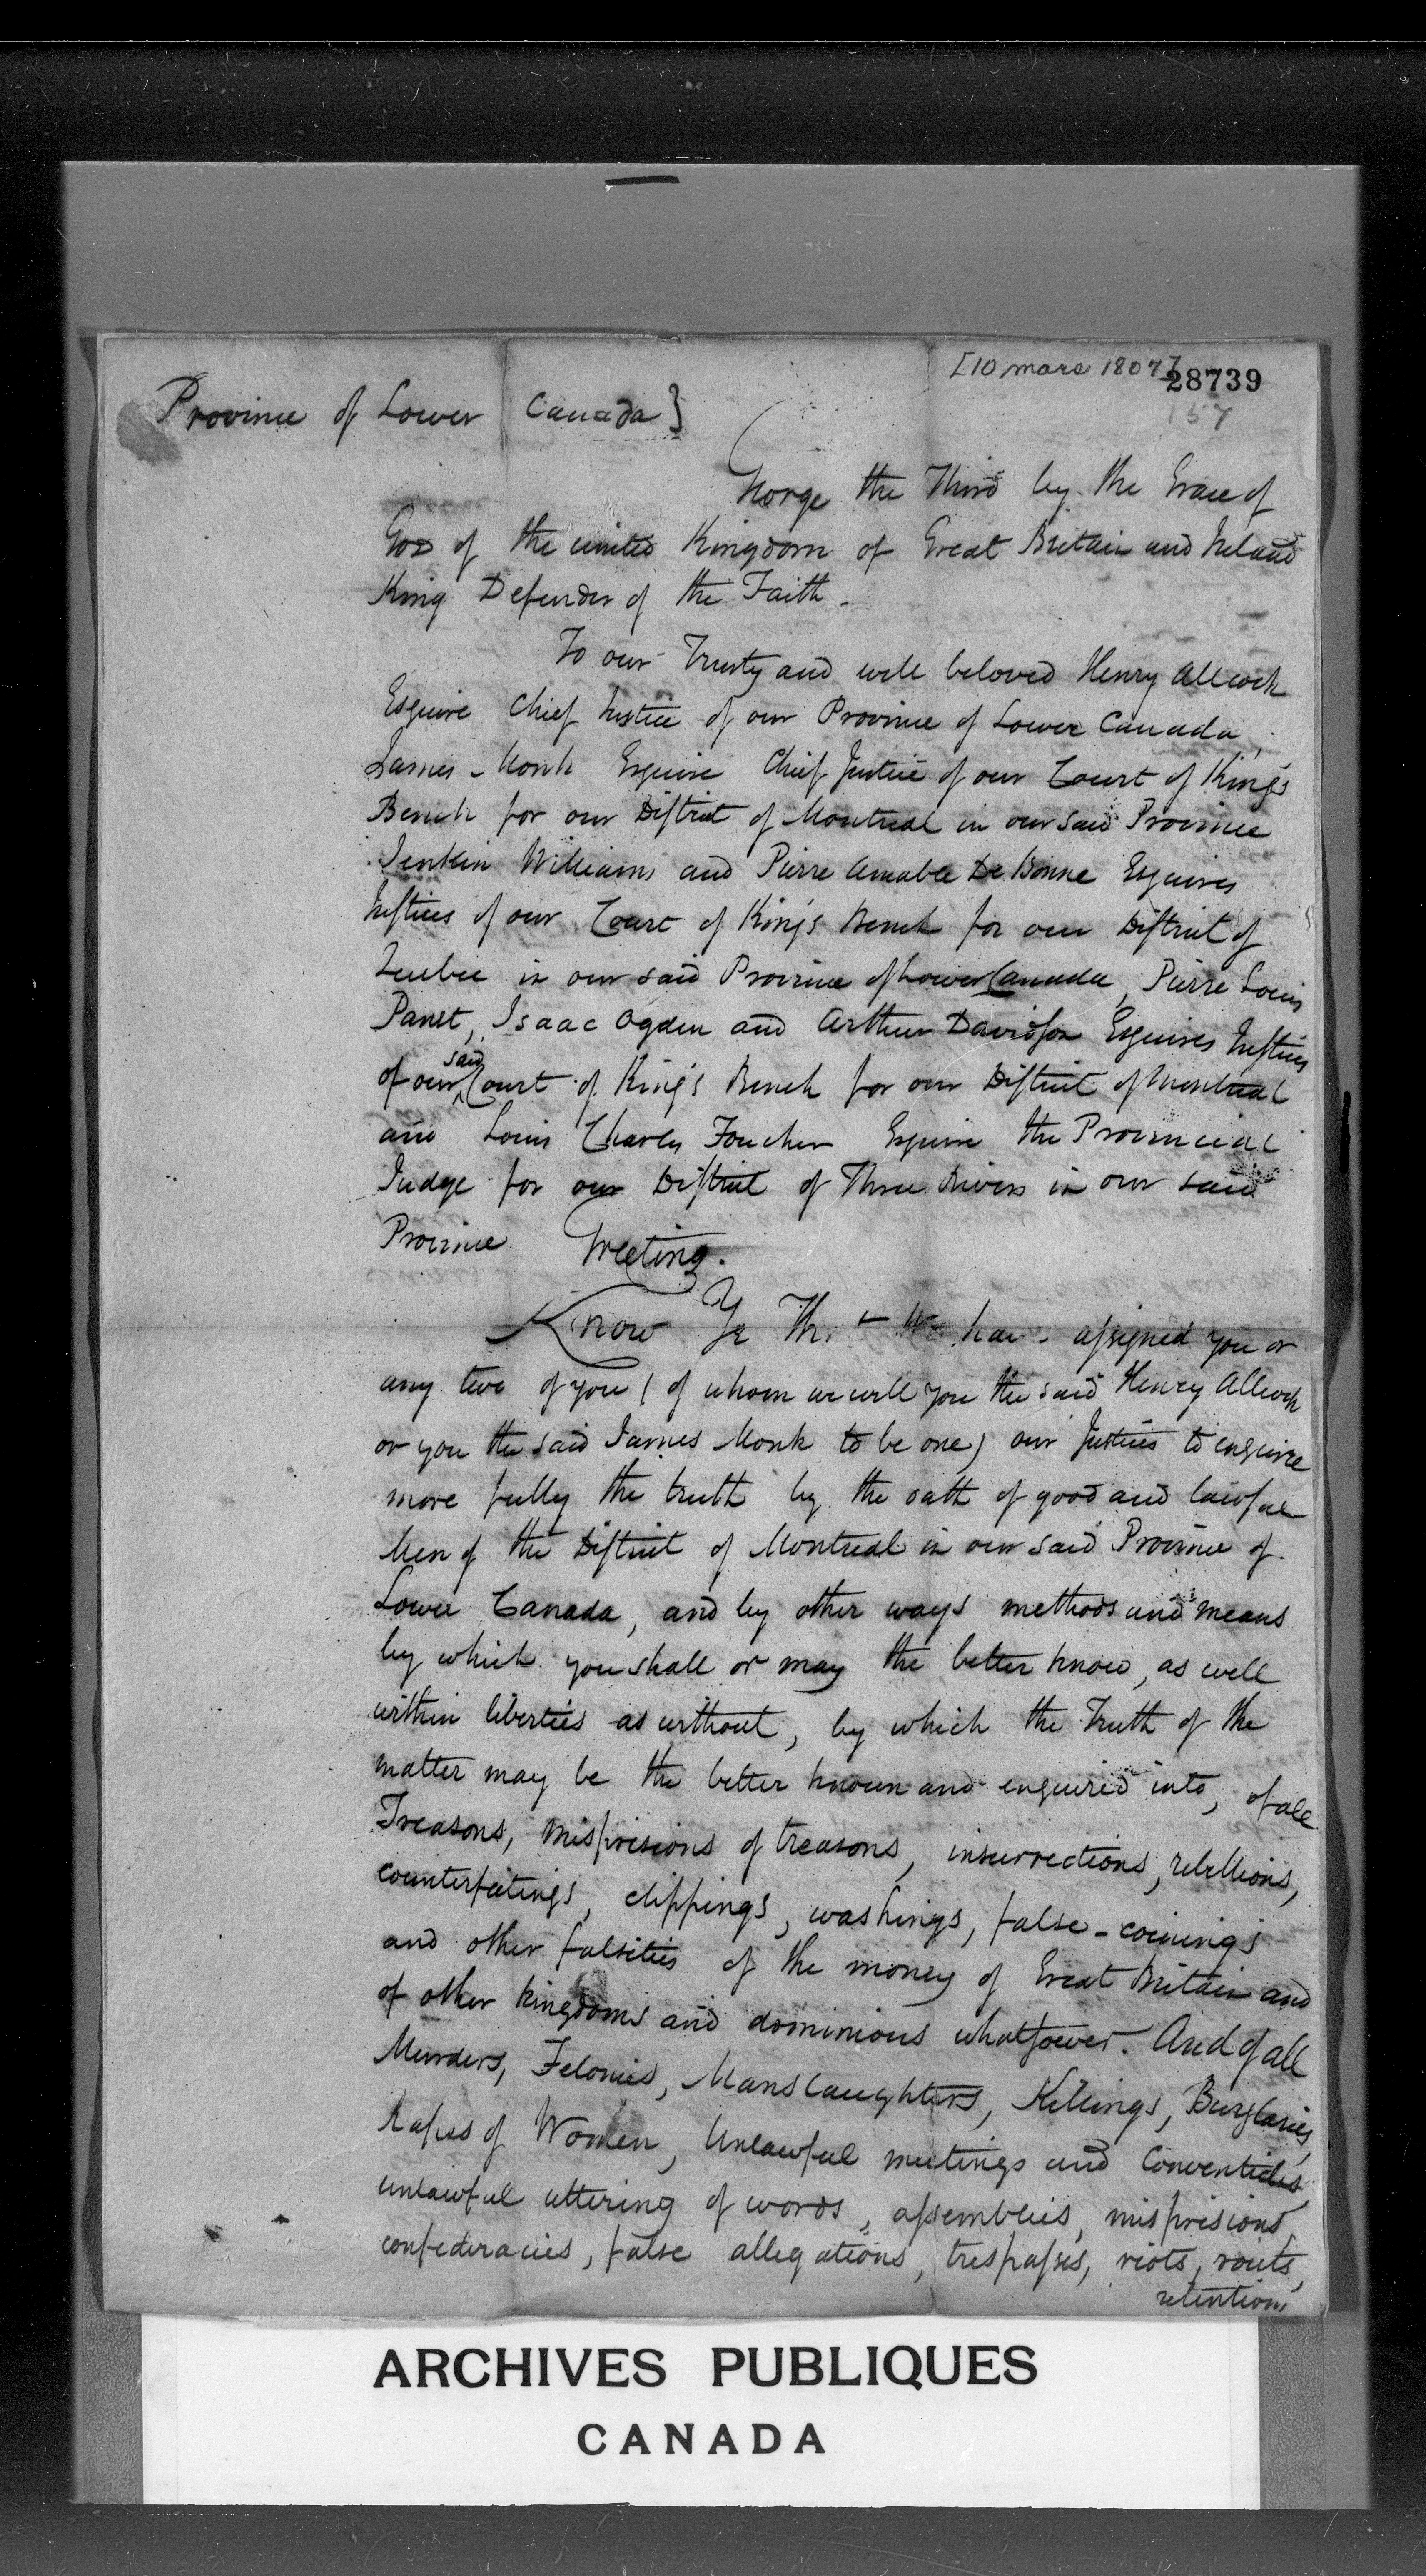 [10 mars 1807]
28739
157
Province of Lower Canada}
George the Third by the Grace of
God of the united Kingdom of Great Britain and Ireland
King Defender of the Faith.
To our Trusty and well beloved Henry Allcock
Esquire Chief Justice of our Province of Lower Canada,
James Monk Esquire Chief Justice of our Court of King's
Bench for our District of Montreal in our said Province
Jenkin Williams and Pierre Amable De Bonne Esquires
Justices of our Court of King's Bench for our District of
Quebec in our said Province of Lower Canada, Pierre Louis
Panet, Isaac Ogden and Arthur Davidson Esquires Justices
of our said Court of King's Bench for our District of Montreal
and Louis Charles Foucher Esquire the Provincial
Judge for our District of Three Rivers in our said
Province Greeting.
Know Ye That We have assigned you or
any two of you (of whom we will you the said Henry Allcock
or you the said James Monk to be one) our Justices to enquire
more fully the truth by the oath of good and lawful
Men of the District of Montreal in our said Province of
Lower Canada, and by other ways methods and means
by which you shall or may the better know, as well
within liberties as without, by which the Truth of the
matter may be the better known and enquired into, of all
Treasons, misprisions of treasons, insurrections, rebellions,
counterfeitings, clippings, washings, false-coinings
and other falsities of the money of Great Britain and
of other kingdoms and dominions whatsoever. And of all
Murders, Felonies, Manslaughters, Killings, Burglaries,
Rapes of Women, Unlawful meetings and Conventicles
unlawful uttering of words, assemblies, misprisions,
confederacies, false allegations, trespasses, riots, routs,
retentions
ARCHIVES PUBLIQUES
CANADA